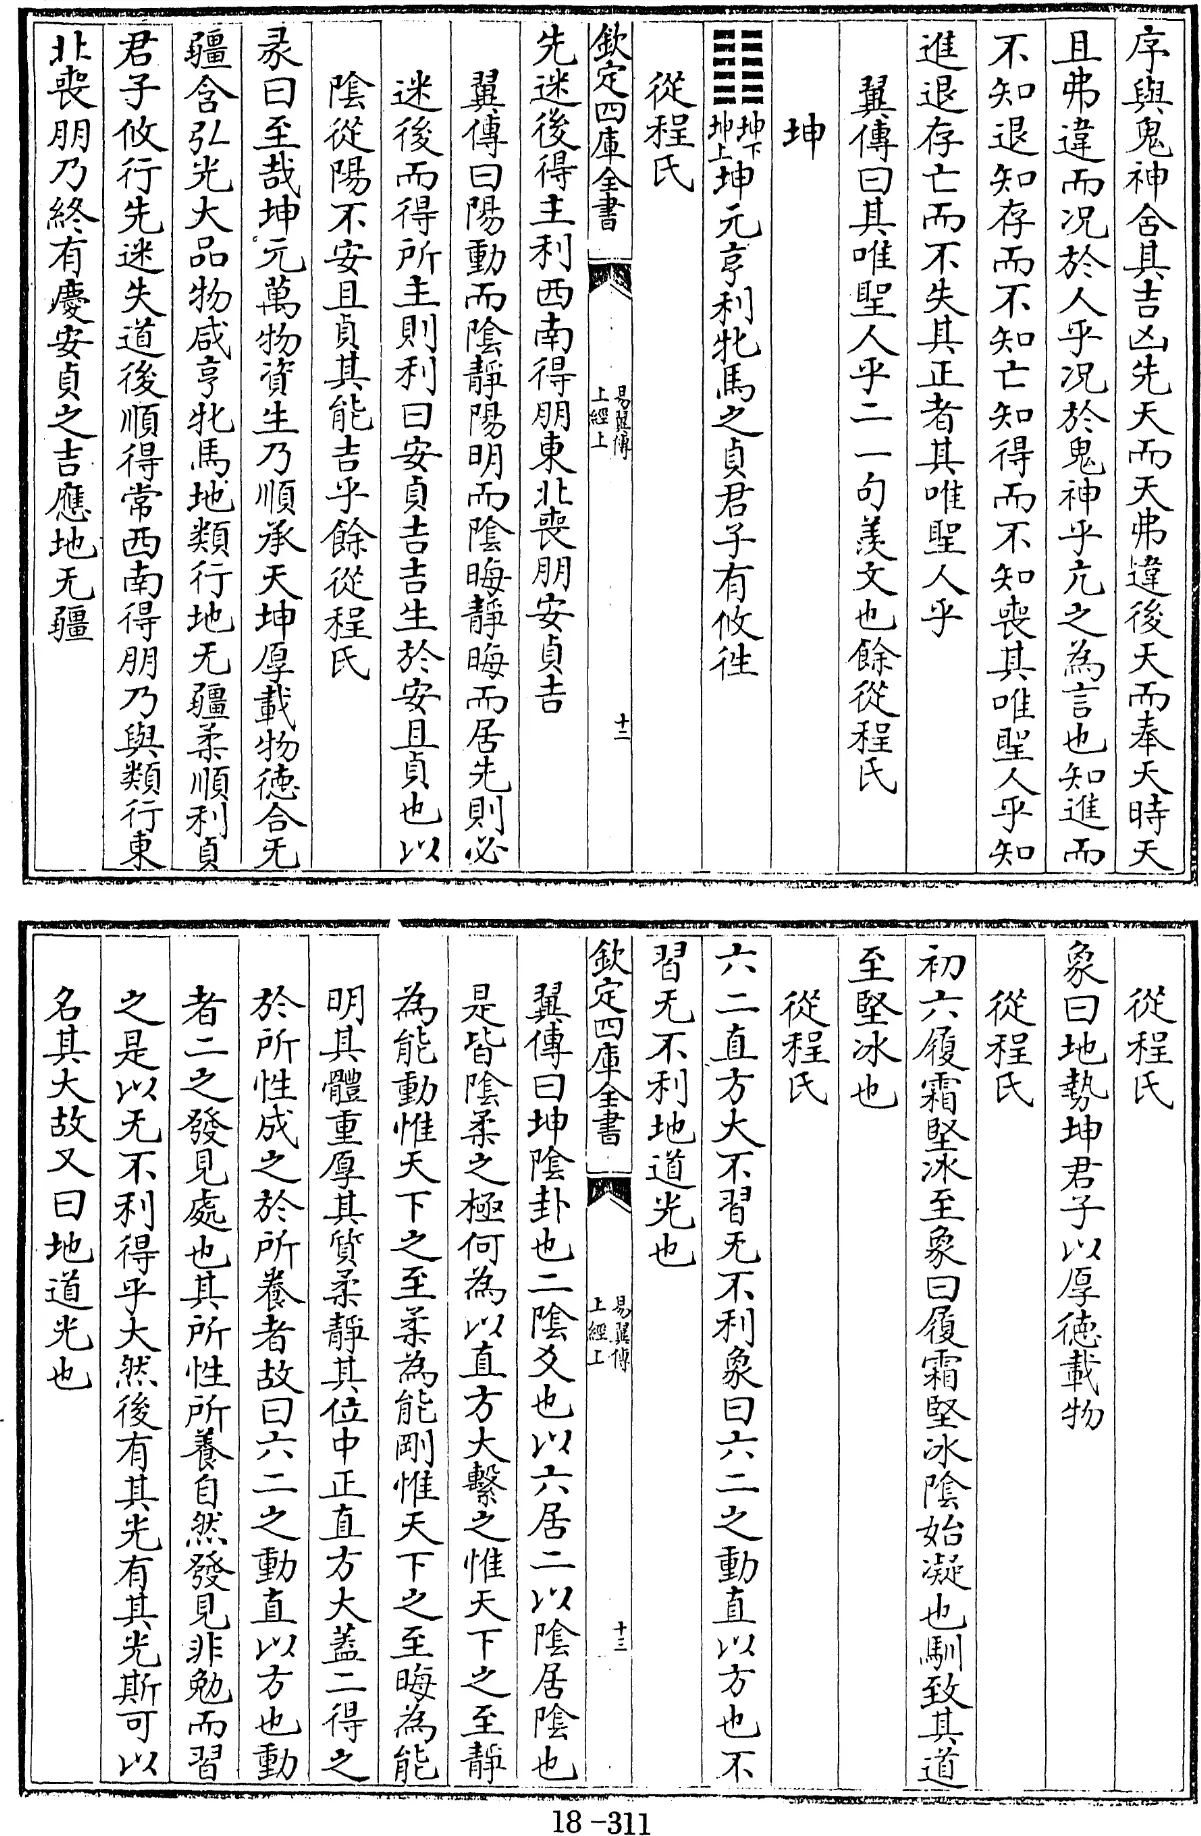 序與鬼神合其吉凶先天而天弗違後天而奉天時天
且弗違而況於人乎況於鬼神乎亢之為言也知進而
不知退知存而不知亡知得而不知喪其唯聖人乎知
進退存亡而不失其正者其唯聖人乎
翼傳曰其唯聖人乎二一句羨文也餘從程氏
坤
䷁坤下坤上坤元亨利牝馬之貞君子有攸往
從程氏
欽定四庫全書 易翼傳 上經上 十二
先迷後得主利西南得朋東北喪朋安貞吉
翼傳曰陽動而陰靜陽明而陰晦靜晦而居先則必
迷後而得所主則利曰安貞吉吉生於安且貞也以
陰從陽不安且貞其能吉乎餘從程氏
彖曰至哉坤元萬物資生乃順承天坤厚載物德合无
疆含弘光大品物咸亨牝馬地類行地无疆柔順利貞
君子攸行先迷失道後順得常西南得朋乃與類行東
北喪朋乃終有慶安貞之吉應地无疆
從程氏
象曰地勢坤君子以厚德載物
從程氏
初六履霜堅冰至象曰履霜堅冰陰始凝也馴致其道
至堅冰也
從程氏
六二直方大不習无不利象曰六二之動直以方也不
習无不利地道光也
欽定四庫全書 易翼傳 上經上 十三
翼傳曰坤陰卦也二陰爻也以六居二以陰居陰也
是皆陰柔之極何為以直方大繫之惟天下之至靜
為能動惟天下之至柔為能剛惟天下之至晦為能
明其體重厚其質柔靜其位中正直方大蓋二得之
於所性成之於所養者故曰六二之動直以方也動
者二之發見處也其所性所養自然發見非勉而習
之是以无不利得乎大然後有其光有其光斯可以
名其大故又曰地道光也
18-311